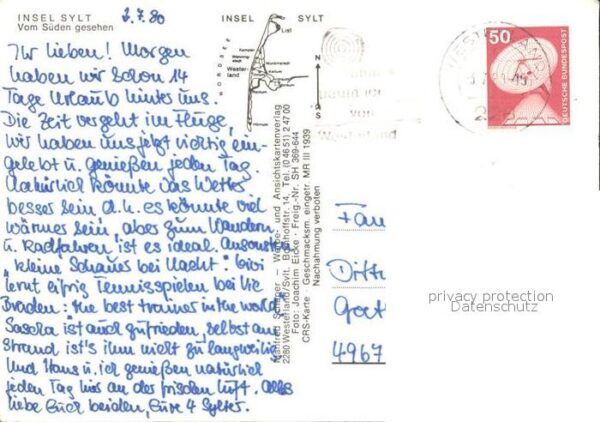 INSEL SYLT
Vom Süden gesehen
2.7.80
Ihr Lieben! Morgen
haben wir schon 14
Tage Urlaub hinter uns.
Die Zeit vergeht im Fluge,
wir haben uns jetzt richtig ein-
gelebt u. genießen jeden Tag.
Natürlich könnte das Wetter
besser sein d.h. es könnte viel
wärmer sein, aber zum Wandern
u. Radfahren ist es ideal. Ansonsten
"kleine Schauer bei Nacht". Gibi
lernt eifrig Tennisspielen bei Vic
Braden: "the best trainer in the world,"
Sascha ist auch zufrieden, selbst am
Strand ist's ihm nicht zu langweilig
Und Hans u. ich genießen natürlich
jeden Tag hier an der frischen Luft. Alles
liebe Euch beiden, Eure 4 Sylter.
INSEL SYLT
NORDSEE
List
Kampen
Wester-
land
Keitum
N
S
Manfred Schlager – Werbe- und Ansichtskartenverlag
2280 Westerland/Sylt, Bahnhofstr. 14, Tel. (0 46 51) 2 47 00
Foto: Joachim Eicke · Freig.-Nr. SH 369-644
CRS-Karte Geschmacksm. eingetr. MR III 1939
Nachahmung verboten
von
Westerland
50
DEUTSCHE BUNDESPOST
Fam
4967
privacy protection
Datenschutz